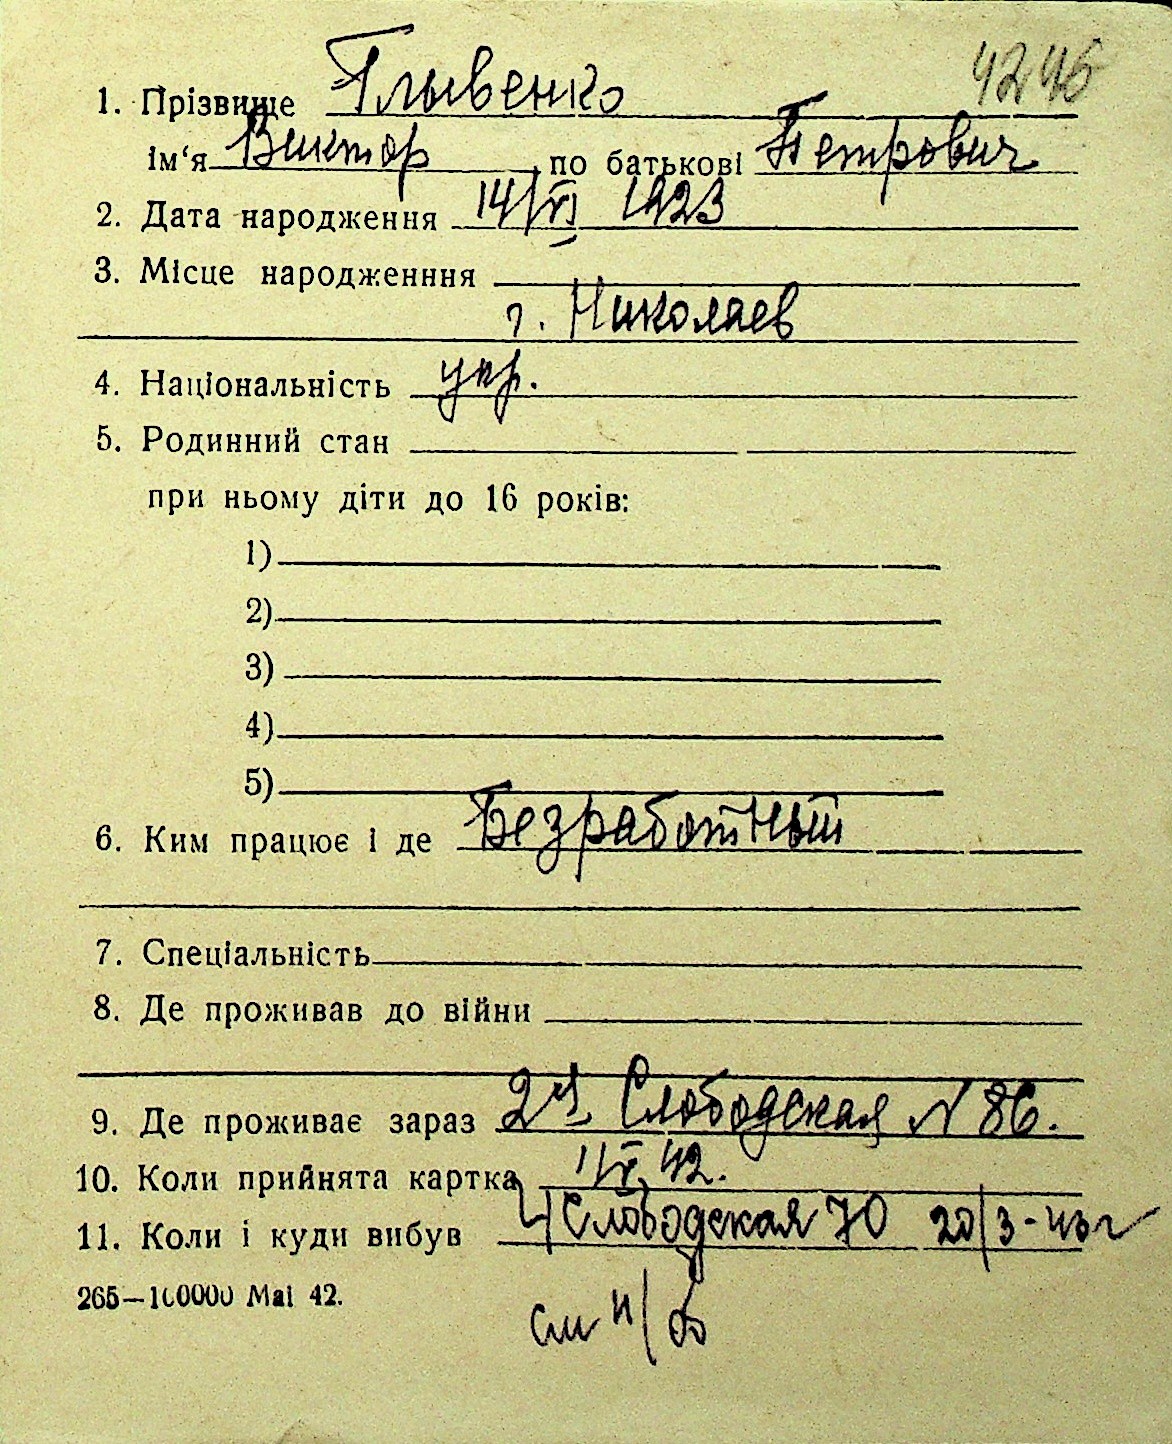 4245
1. Прізвище Глывенко
ім‘я Виктор по батькові Петрович
2. Дата народження 14/VI 1923
3. Місце народженння
г. Николаев
4. Національність укр.
5. Родинний стан
при ньому діти до 16 років:
1)
2)
3)
4)
5)
6. Ким працює і де Безработный
7. Спеціальність
8. Де проживав до війни
9. Де проживає зараз 2я Слободская N 86.
10. Коли прийнята картка 42.
11. Коли і куди вибув 4 Слободская 70 20/3-43г
265—100000 Mai 42.
см н/об